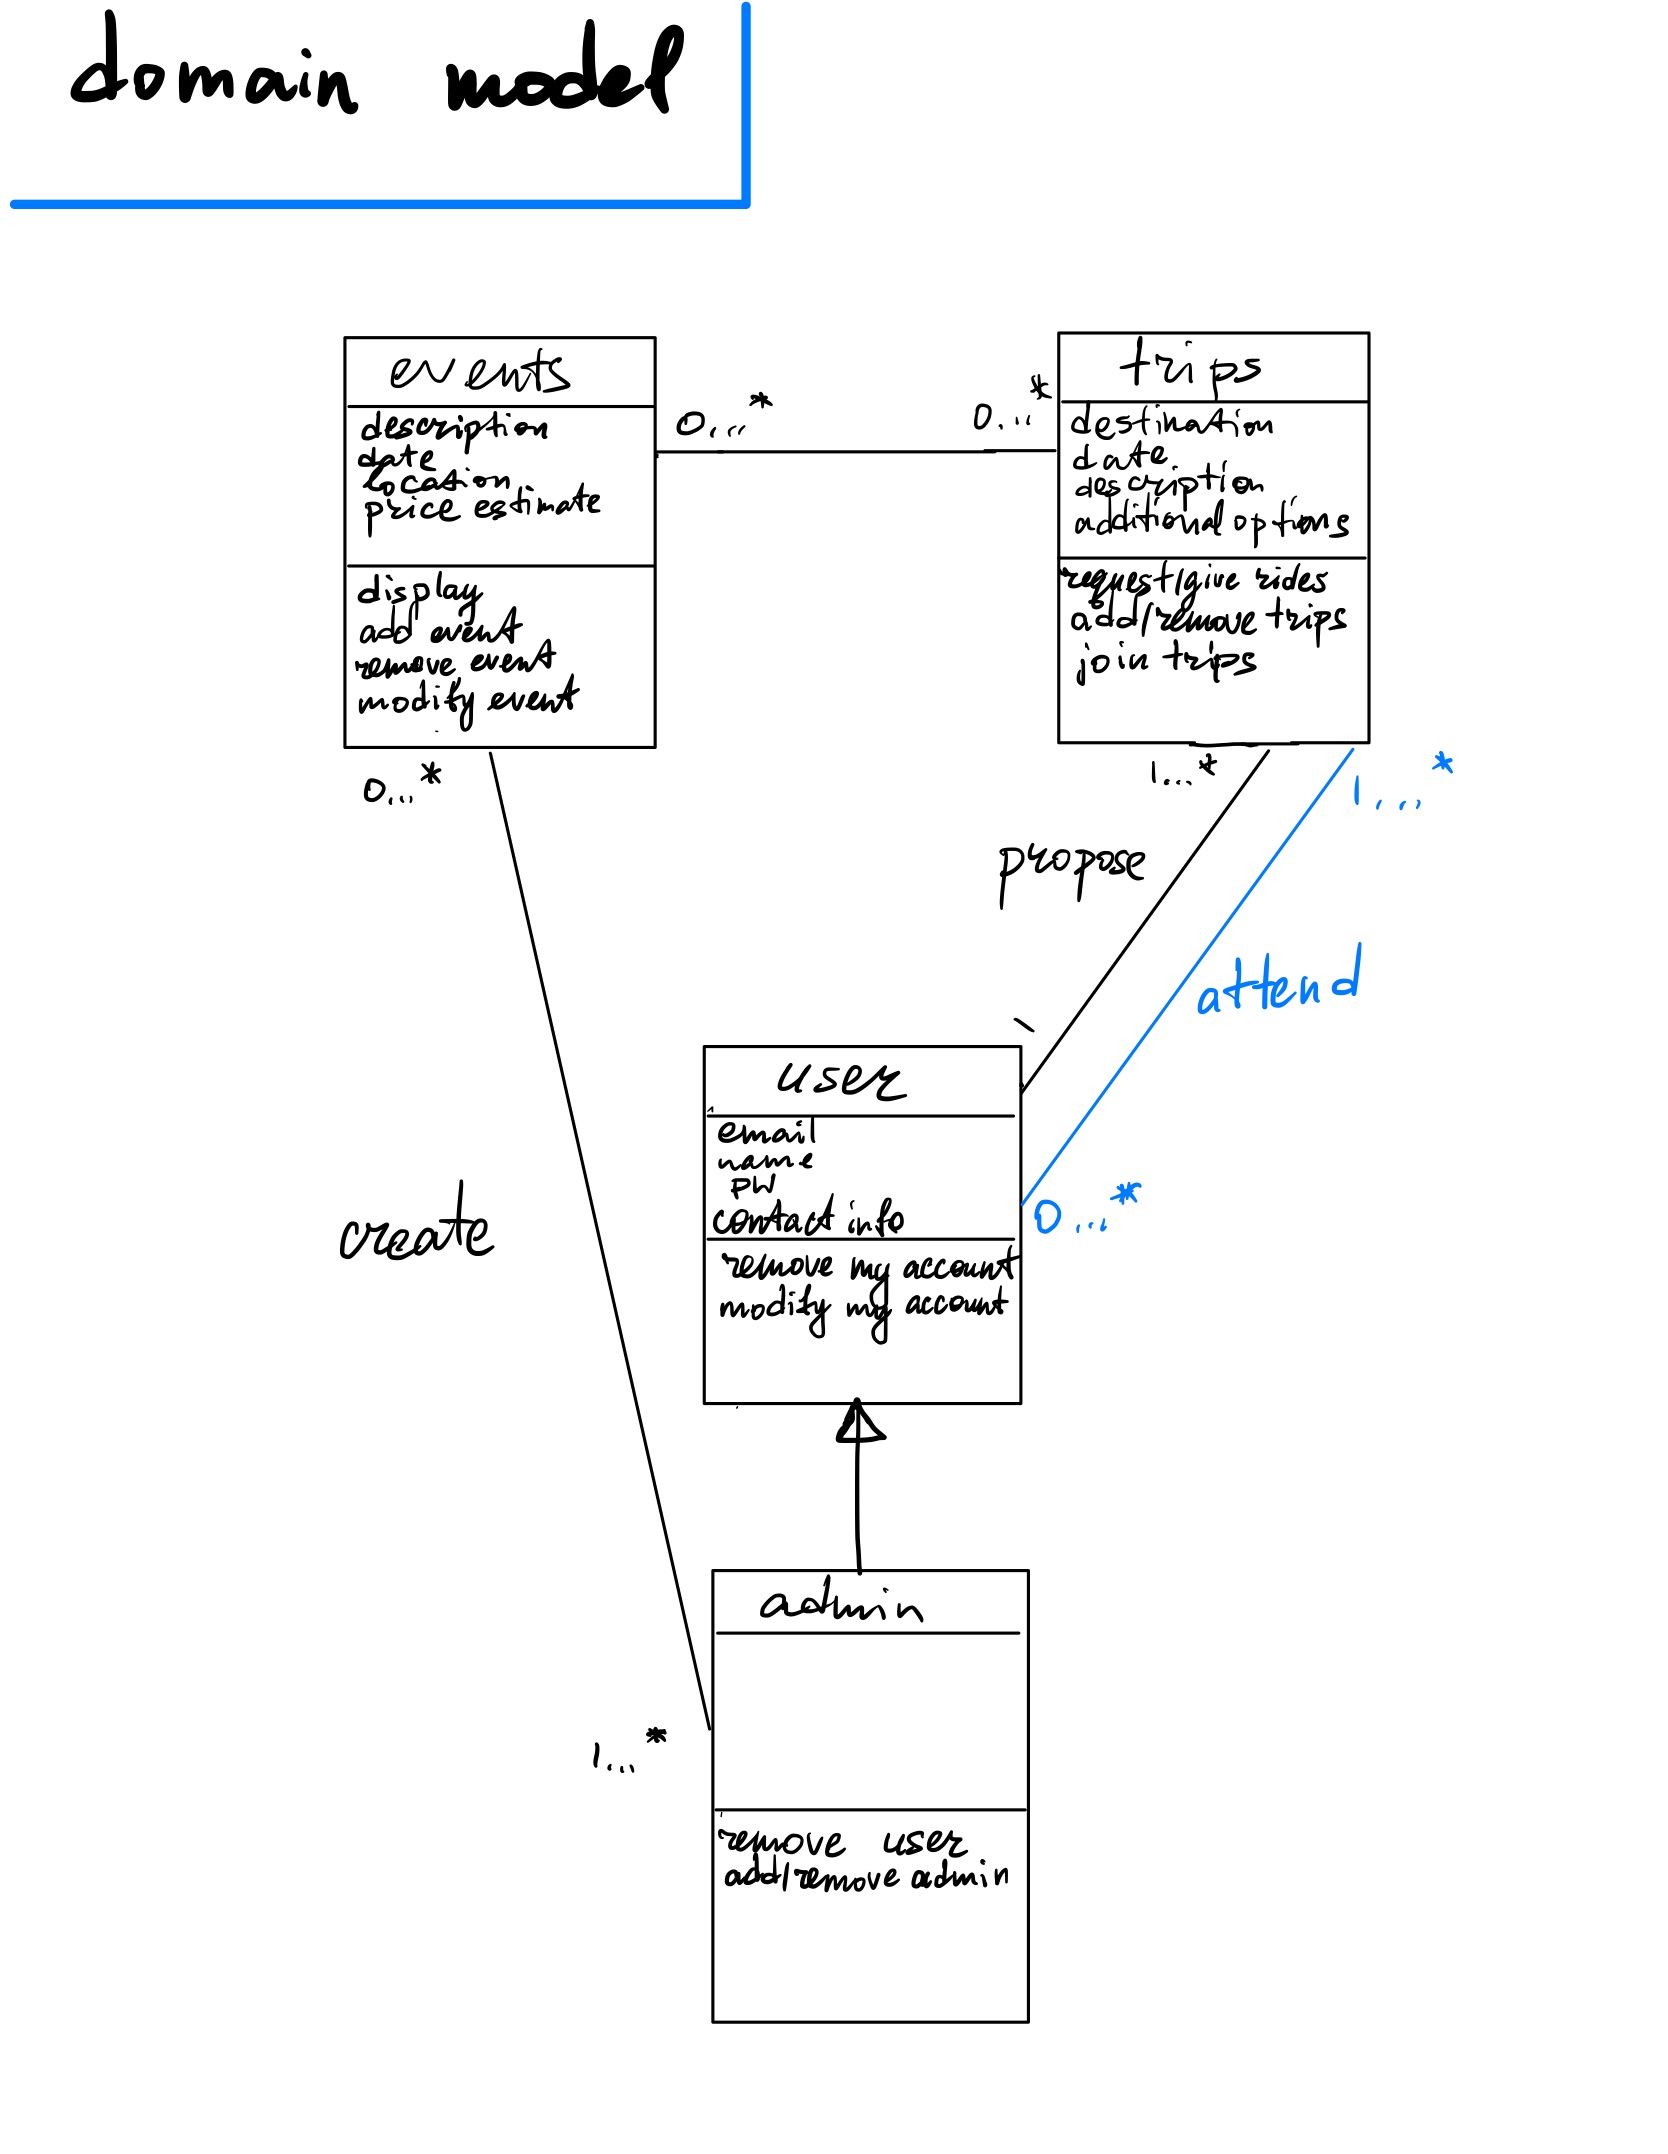 domain model
events
description
date
location
price estimate
display
add event
remove event
modify event
0...*
0...*
trips
destination
date
description
additional options
request/give rides
add/remove trips
join trips
0...*
1...*
1...*
propose
attend
1
user
email
name
pw
contact info
remove my account
modify my account
0...*
create
1...*
admin
remove user
add/remove admin